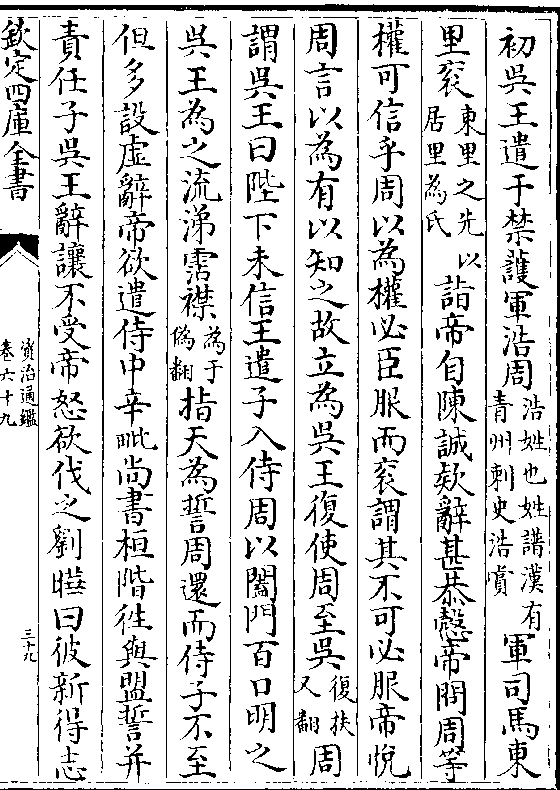 初吳王遣于禁護軍浩周浩姓也姓譜漢有青州刺史浩賞軍司馬東
里袞東里之先以居里為氏詣帝自陳誠欵辭甚恭慤帝問周等
權可信乎周以為權必臣服而袞謂其不可必服帝悅
周言以為有以知之故立為吳王復使周至吳復扶又翻周
謂吳王曰陛下未信王遣子入侍周以闔門百口明之
吳王為之流涕霑襟為于偽翻指天為誓周還而侍子不至
但多設虛辭帝欲遣侍中辛毗尚書桓階往與盟誓并
責任子吳王辭讓不受帝怒欲伐之劉曄曰彼新得志
欽定四庫全書
資治通鑑
卷六十九
三十九